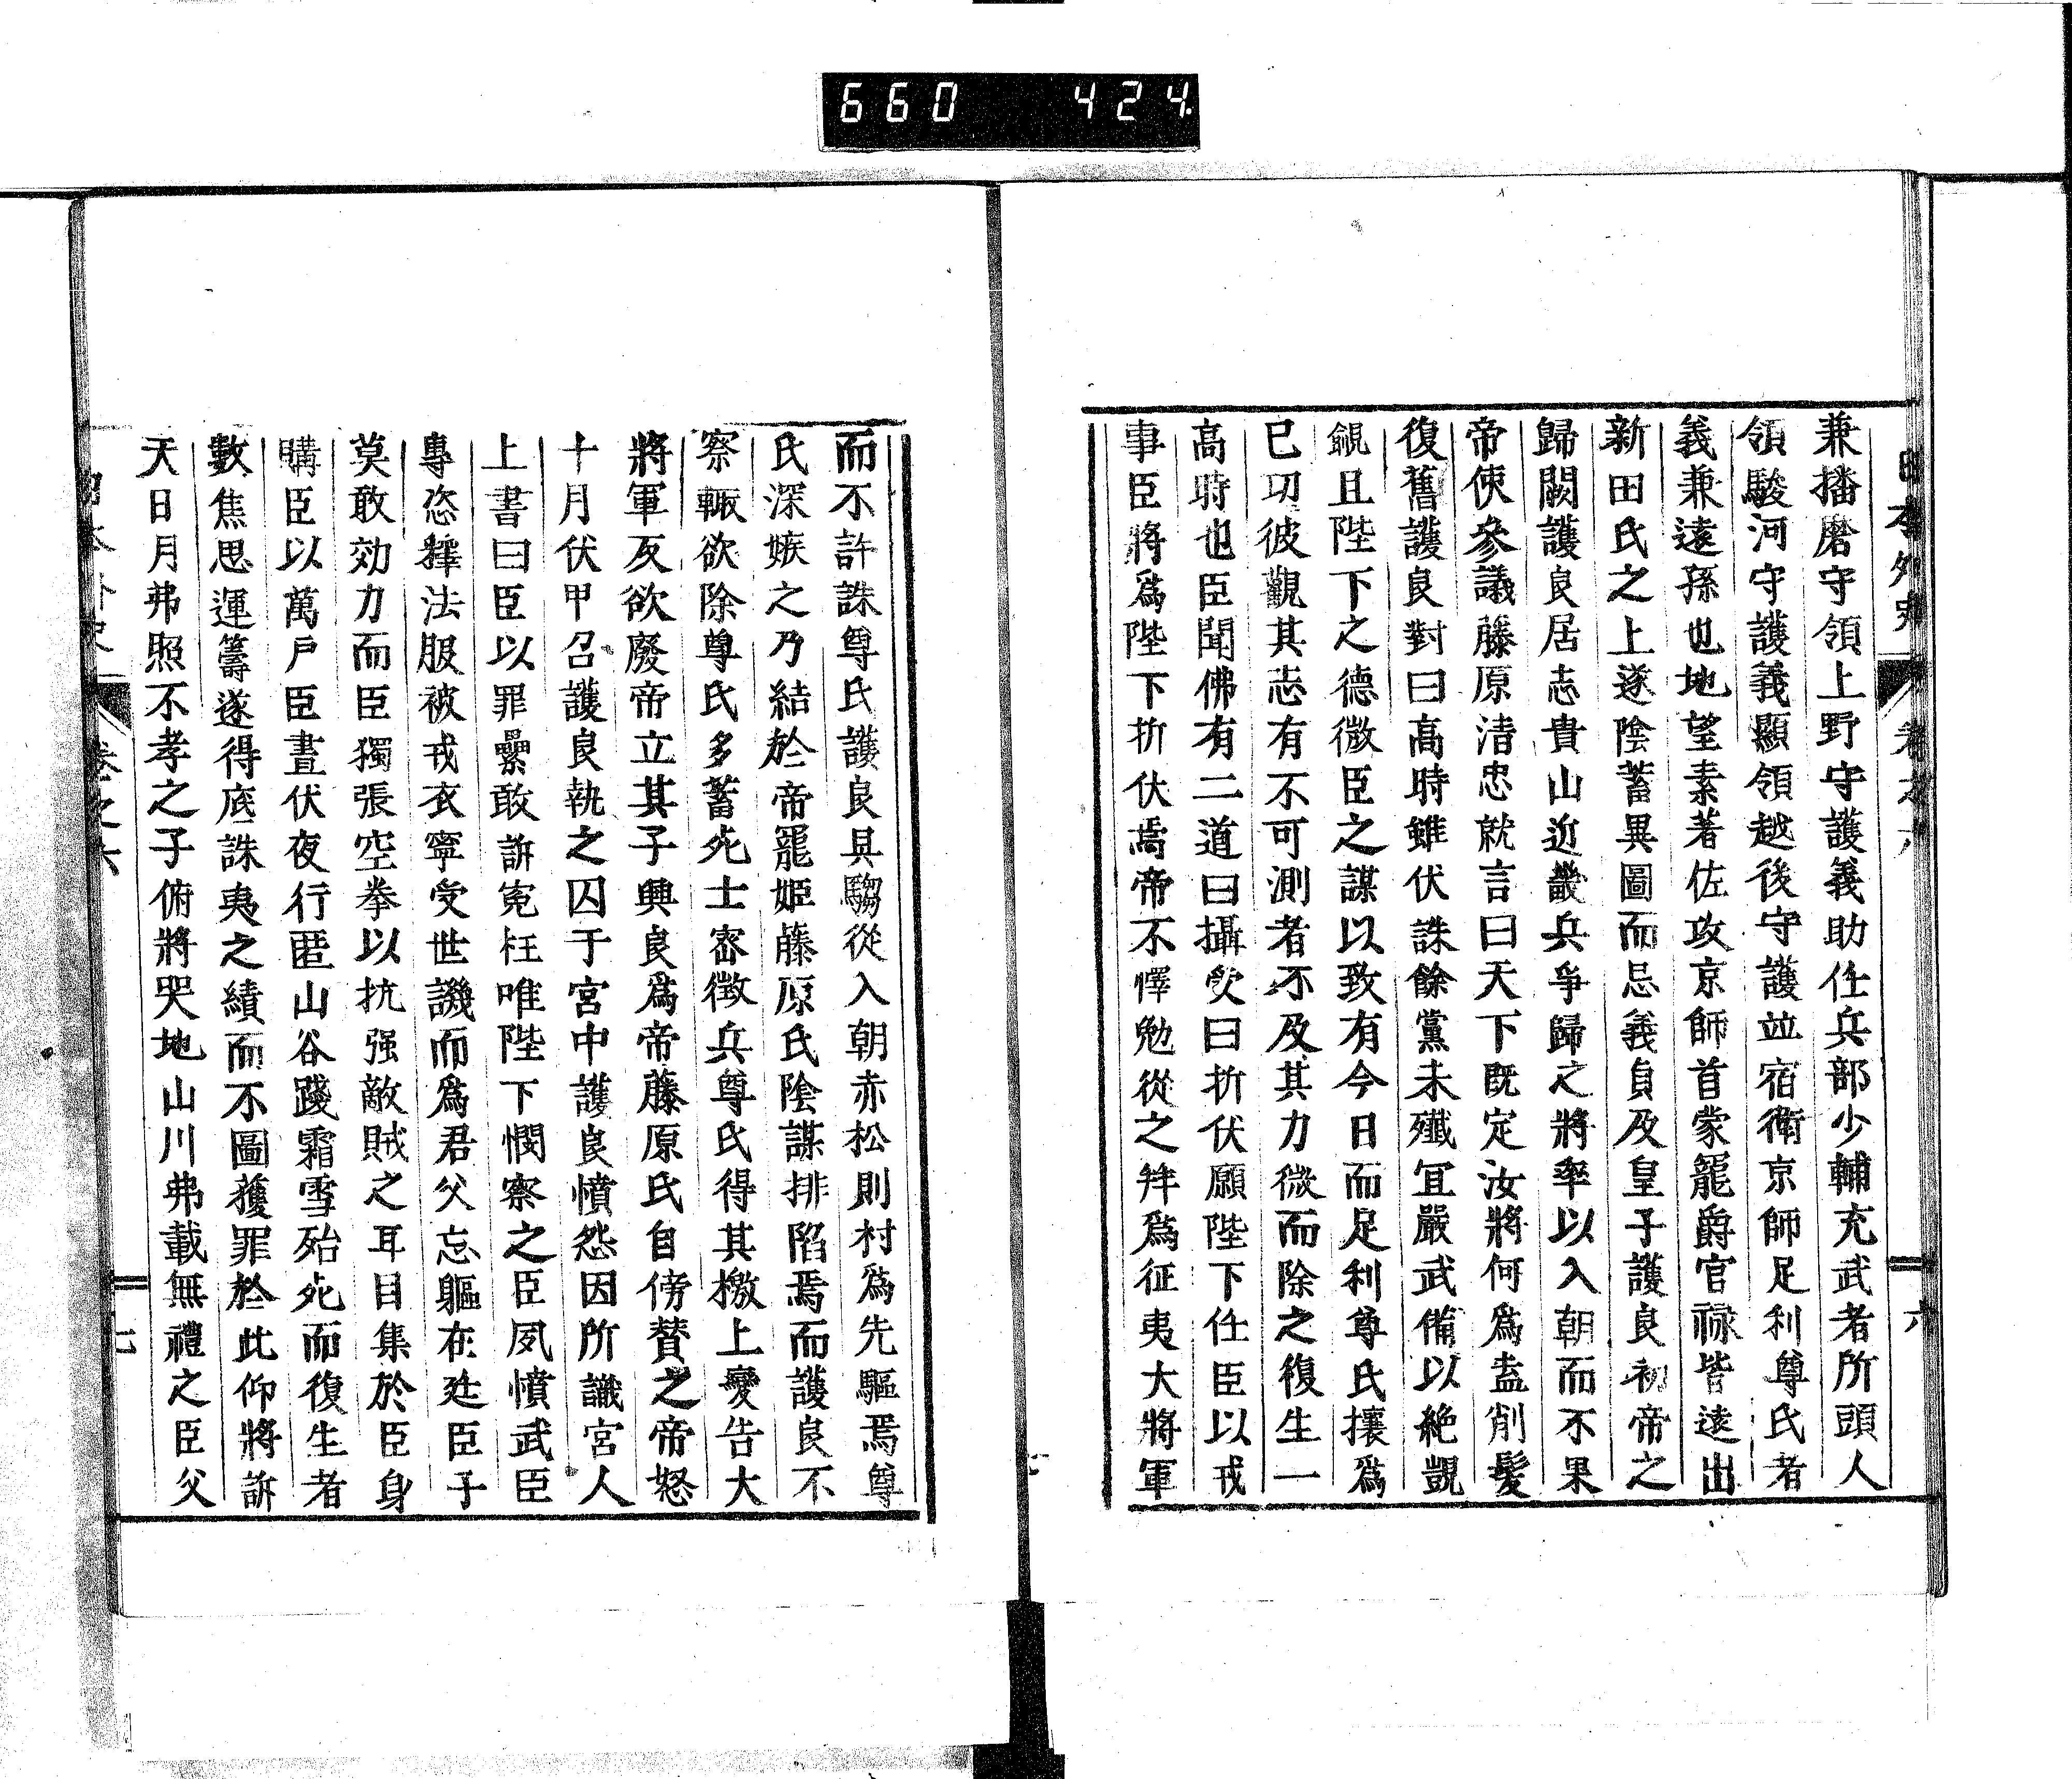 660 424
日本外史 卷之六 六
兼播磨守領上野守護義助任兵部少輔充武者所頭人
領駿河守護義顯領越後守護並宿衛京師足利尊氏者
義兼遠孫也地望素著佐攻京師首蒙寵爵官祿皆遠出
新田氏之上遂陰蓄異圖而忌義貞及皇子護良初帝之
歸闕護良居志貴山近畿兵爭歸之將率以入朝而不果
帝使參議藤原清忠就言曰天下既定汝將何爲盍削髮
復舊護良對曰高時雖伏誅餘黨未殲宜嚴武備以絶覬
覦且陛下之德微臣之謀以致有今日而足利尊氏攘爲
已功彼觀其志有不可測者不及其力微而除之復生一
高時也臣聞佛有二道曰攝受曰折伏願陛下任臣以戎
事臣將爲陛下折伏焉帝不懌勉從之拜爲征夷大將軍
而不許誅尊氏護良具騶從入朝赤松則村爲先驅焉尊
氏深嫉之乃結於帝寵姬藤原氏陰謀排陷焉而護良不
察輙欲除尊氏多蓄死士密徵兵尊氏得其檄上變告大
將軍反欲廢帝立其子興良爲帝藤原氏自傍賛之帝怒
十月伏甲召護良執之囚于宮中護良憤怨因所識宮人
上書曰臣以罪纍敢訴寃枉唯陛下憫察之臣夙憤武臣
專恣釋法服被戎衣寧受世譏而爲君父忘軀在廷臣子
莫敢効力而臣獨張空拳以抗强敵賊之耳目集於臣身
購臣以萬戶臣晝伏夜行匿山谷踐霜雪殆死而復生者
數焦思運籌遂得底誅夷之績而不圖獲罪於此仰將訴
天日月弗照不孝之子俯將哭地山川弗載無禮之臣父
日本外史 卷之六 七